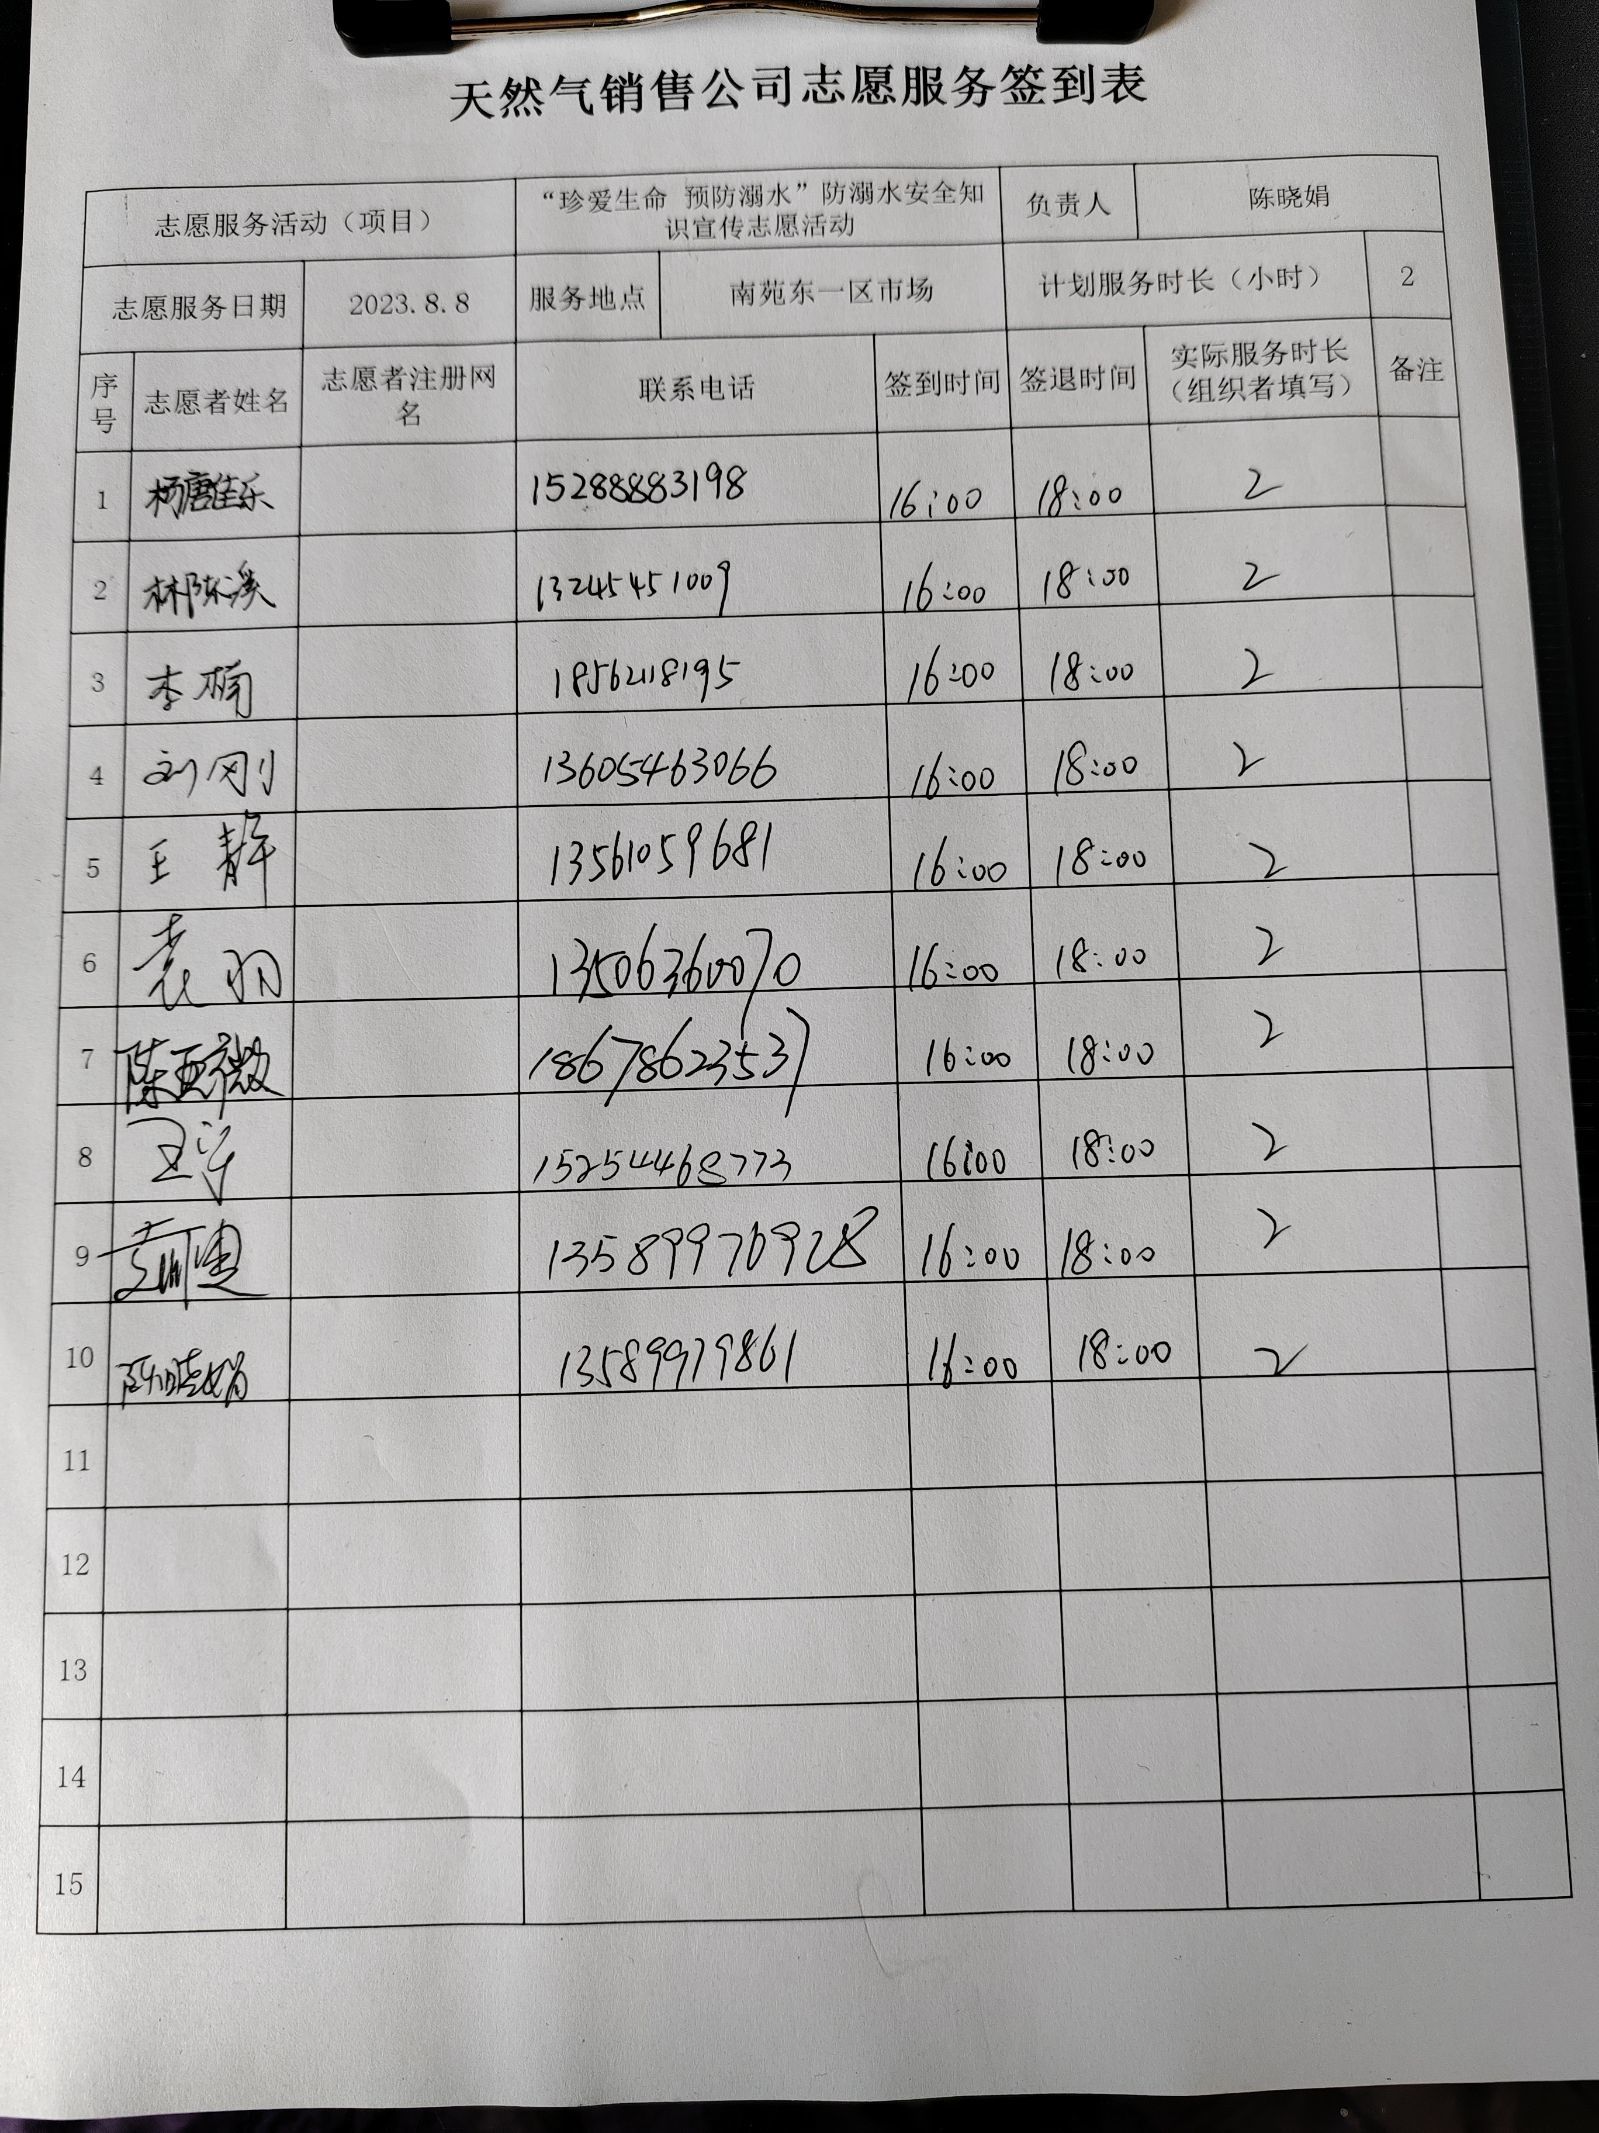 天然气销售公司志愿服务签到表
志愿服务活动（项目） “珍爱生命 预防溺水”防溺水安全知识宣传志愿活动 负责人 陈晓娟
志愿服务日期 2023.8.8 服务地点 南苑东一区市场 计划服务时长（小时） 2
序号 志愿者姓名 志愿者注册网名 联系电话 签到时间 签退时间 实际服务时长（组织者填写） 备注
1 杨唐佳乐 15288883198 16:00 18:00 2
2 林陈溪 13245451009 16:00 18:00 2
3 李楠 18562118195 16:00 18:00 2
4 刘刚 13605463066 16:00 18:00 2
5 王静 13561059681 16:00 18:00 2
6 袁羽 13506360070 16:00 18:00 2
7 陈亚薇 18678623537 16:00 18:00 2
8 王宁 15254468773 16:00 18:00 2
9 13589976928 16:00 18:00 2
10 陈晓娟 13589979861 16:00 18:00 2
11
12
13
14
15